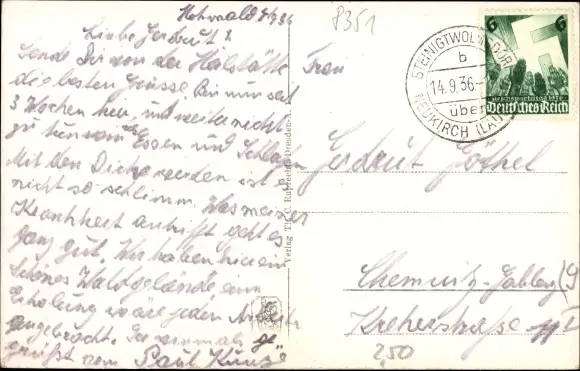 Hohwald 14/9 36
Liebe Gerdrut!
Sende Dir von der Heilstätte
die besten Grüsse. Bin nun seit
3 Wochen hier, und weiter nichts
zu tun von Essen und Schlafen.
Mit den Dicke werden ist es
nicht so schlimm. Was meiner
Krankheit antrifft geht es
ganz gut. Wir haben hier ein
schönes Waldgelände, eine
Erholung wäre jeden
angebracht. Sei nochmals ge
grüsst von Paul Kunze
Verlag Th. C. Ruprecht, Dresden-A.
8351
STEINIGTWOLMSDORF
b
14.9.36
über
NEUKIRCH (LAUS
6 6
Reichsparteitag 1936
Deutsches Reich
Frau
Gerdrut Göthel
Chemnitz-Gablenz
Kreherstraße
2,50